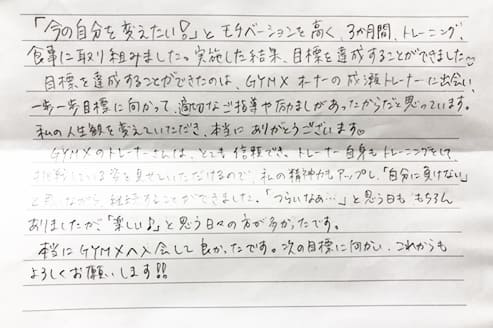 「今の自分を変えたい!」とモチベーションを高く、3か月間、トレーニング、
食事に取り組みました。実施した結果、目標を達成することができました♡
目標を達成することができたのは、GYMX オーナーの成瀬トレーナーに出会い、
一歩一歩目標に向かって、適切なご指導や励ましがあったからだと思っています。
私の人生観を変えていただき、本当にありがとうございます♡
GYMXのトレーナーさんは、とても信頼でき、トレーナー自身もトレーニングをして
いる姿を見せていただけるので、私の精神力もアップし、「自分に負けない」
と思いながら、継続することができました。「つらいなぁ…」と思う日も もちろん
ありましたが、「楽しい♪」と思う日々の方が多かったです。
本当にGYMXへ入会して良かったです。次の目標に向かい、これからも
よろしくお願いします!!